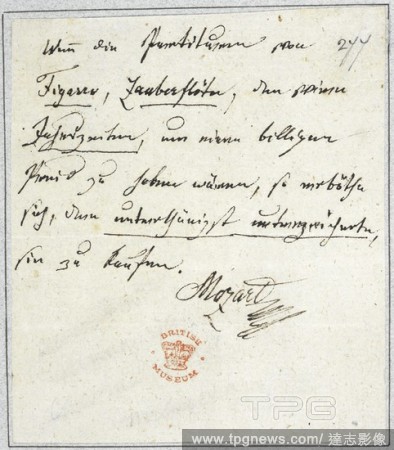 Wenn die Partituren von
Figaro, Zauberflöte,
Jahrszeiten, um einen billigen
Preis zu haben wären, so erböthe
sich, unterthänigst unterzeichnete,
sie zu kaufen.
Mozart
BRITISH
MUSEUM
TPG
www.tpgnews.com/達志影像